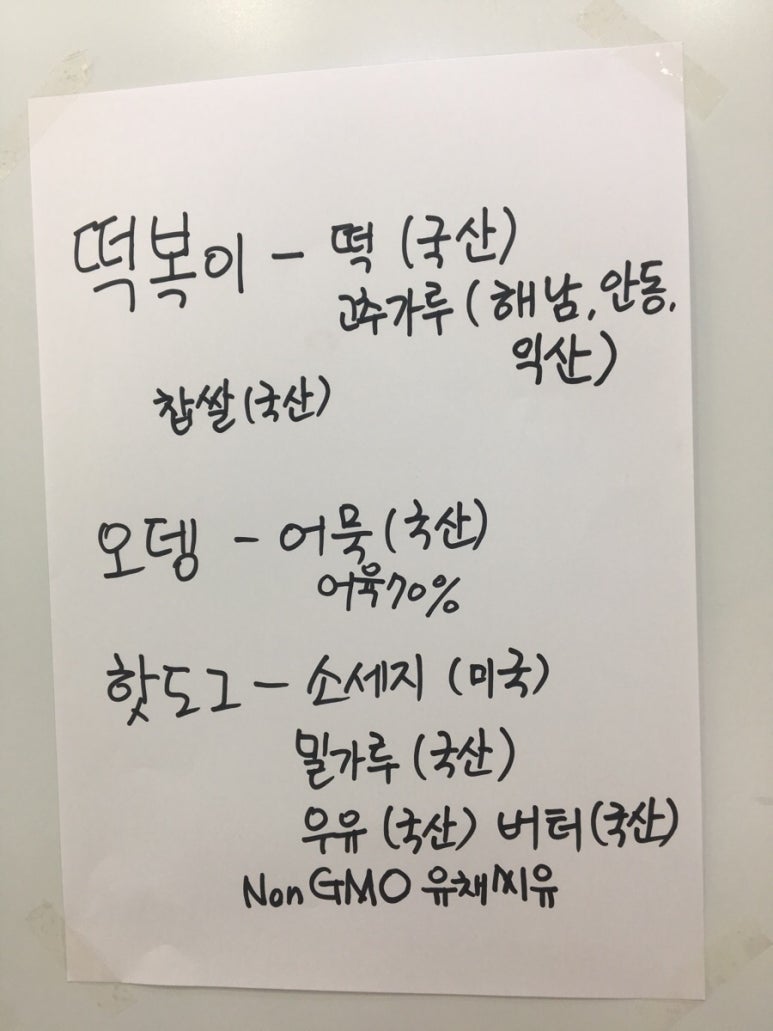 떡볶이 - 떡 (국산)
고추가루 (해남, 안동,
익산)
찹쌀 (국산)
오뎅 - 어묵 (국산)
어육 70%
핫도그 - 소세지 (미국)
밀가루 (국산)
우유 (국산) 버터 (국산)
Non GMO 유채씨유